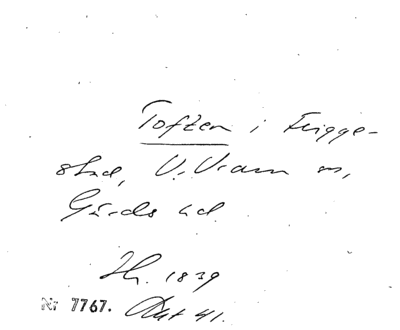 Toften i Frigge-
stad, V. Vram sn,
Gärds hd.
Hr. 1839
Nr 7767. 41.